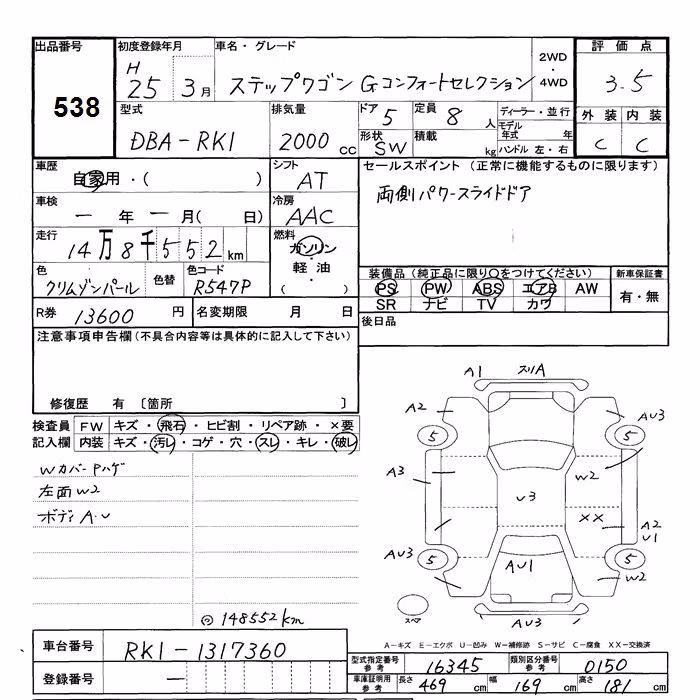 出品番号 初度登録年月 車名・グレード 2WD・4WD 評価点
538 H 25 3月 ステップワゴン Gコンフォートセレクション 3.5
型式 排気量 ドア 5 定員 8人 ディーラー・並行 外装 内装
DBA-RK1 2000cc 形状 SW 積載 kg モデル年式 年 C C
ハンドル 左・右
車歴 シフト セールスポイント (正常に機能するものに限ります)
自家用・( ) AT 両側パワースライドドア
車検 冷房
ー年ー月( 日) AAC
走行 燃料
14万8千552km ガソリン・軽油・( )
色 色替 色コード 装備品(純正品に限り○をつけてください) 新車保証書
クリムゾンパール R547P PS PW ABS エアB AW 有・無
SR ナビ TV カワ
R券 13600円 名変期限 月 日 後日品
注意事項申告欄(不具合内容等は具体的に記入して下さい)
修復歴 有 〔箇所 〕
検査員記入欄 FW キズ・飛石・ヒビ割・リペア跡・×要
内装 キズ・汚レ・コゲ・穴・スレ・キレ・破レ
Wカバー Pハゲ
左面W2
ボディA・U
◎148552km
A1 スリA
A2 AU3
5 5
A3 W2
U3
XX A2
U1
AU3 AU1
5 5
W2
スペア AU3
A-キズ E-エクボ U-凹み W-補修跡 S-サビ C-腐食 XX-交換済
車台番号 RK1-1317360
登録番号 ー
型式指定番号 参考 16345 類別区分番号 参考 0150
車庫証明用 参考 長さ 469cm 幅 169cm 高さ 181cm